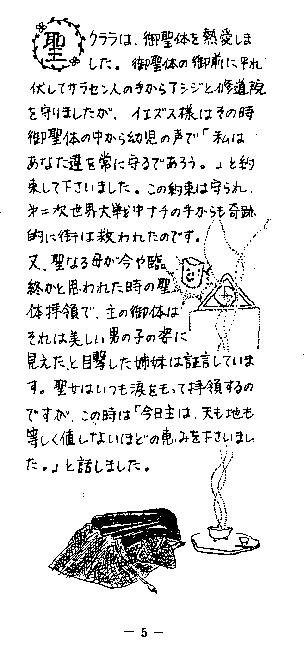 聖クララは、御聖体を熱愛しま
した。御聖体の御前に平れ
伏してサラセン人の手からアシジと修道院
を守りましたが、イエズス様はその時
御聖体の中から幼児の声で「私は
あなた達を常に守るであろう。」と約
束して下さいました。この約束は守られ、
第二次世界大戦中ナチの手からも奇跡
的に街は救われたのです。
又、聖なる母が今や臨
終かと思われた時の聖
体拝領で、主の御体は
それは美しい男の子の姿に
見えた、と目撃した姉妹は証言していま
す。聖女はいつも涙をもって拝領するの
ですが、この時は「今日主は、天も地も
等しく値しないほどの恵みを下さいまし
た。」と話しました。
— 5 —